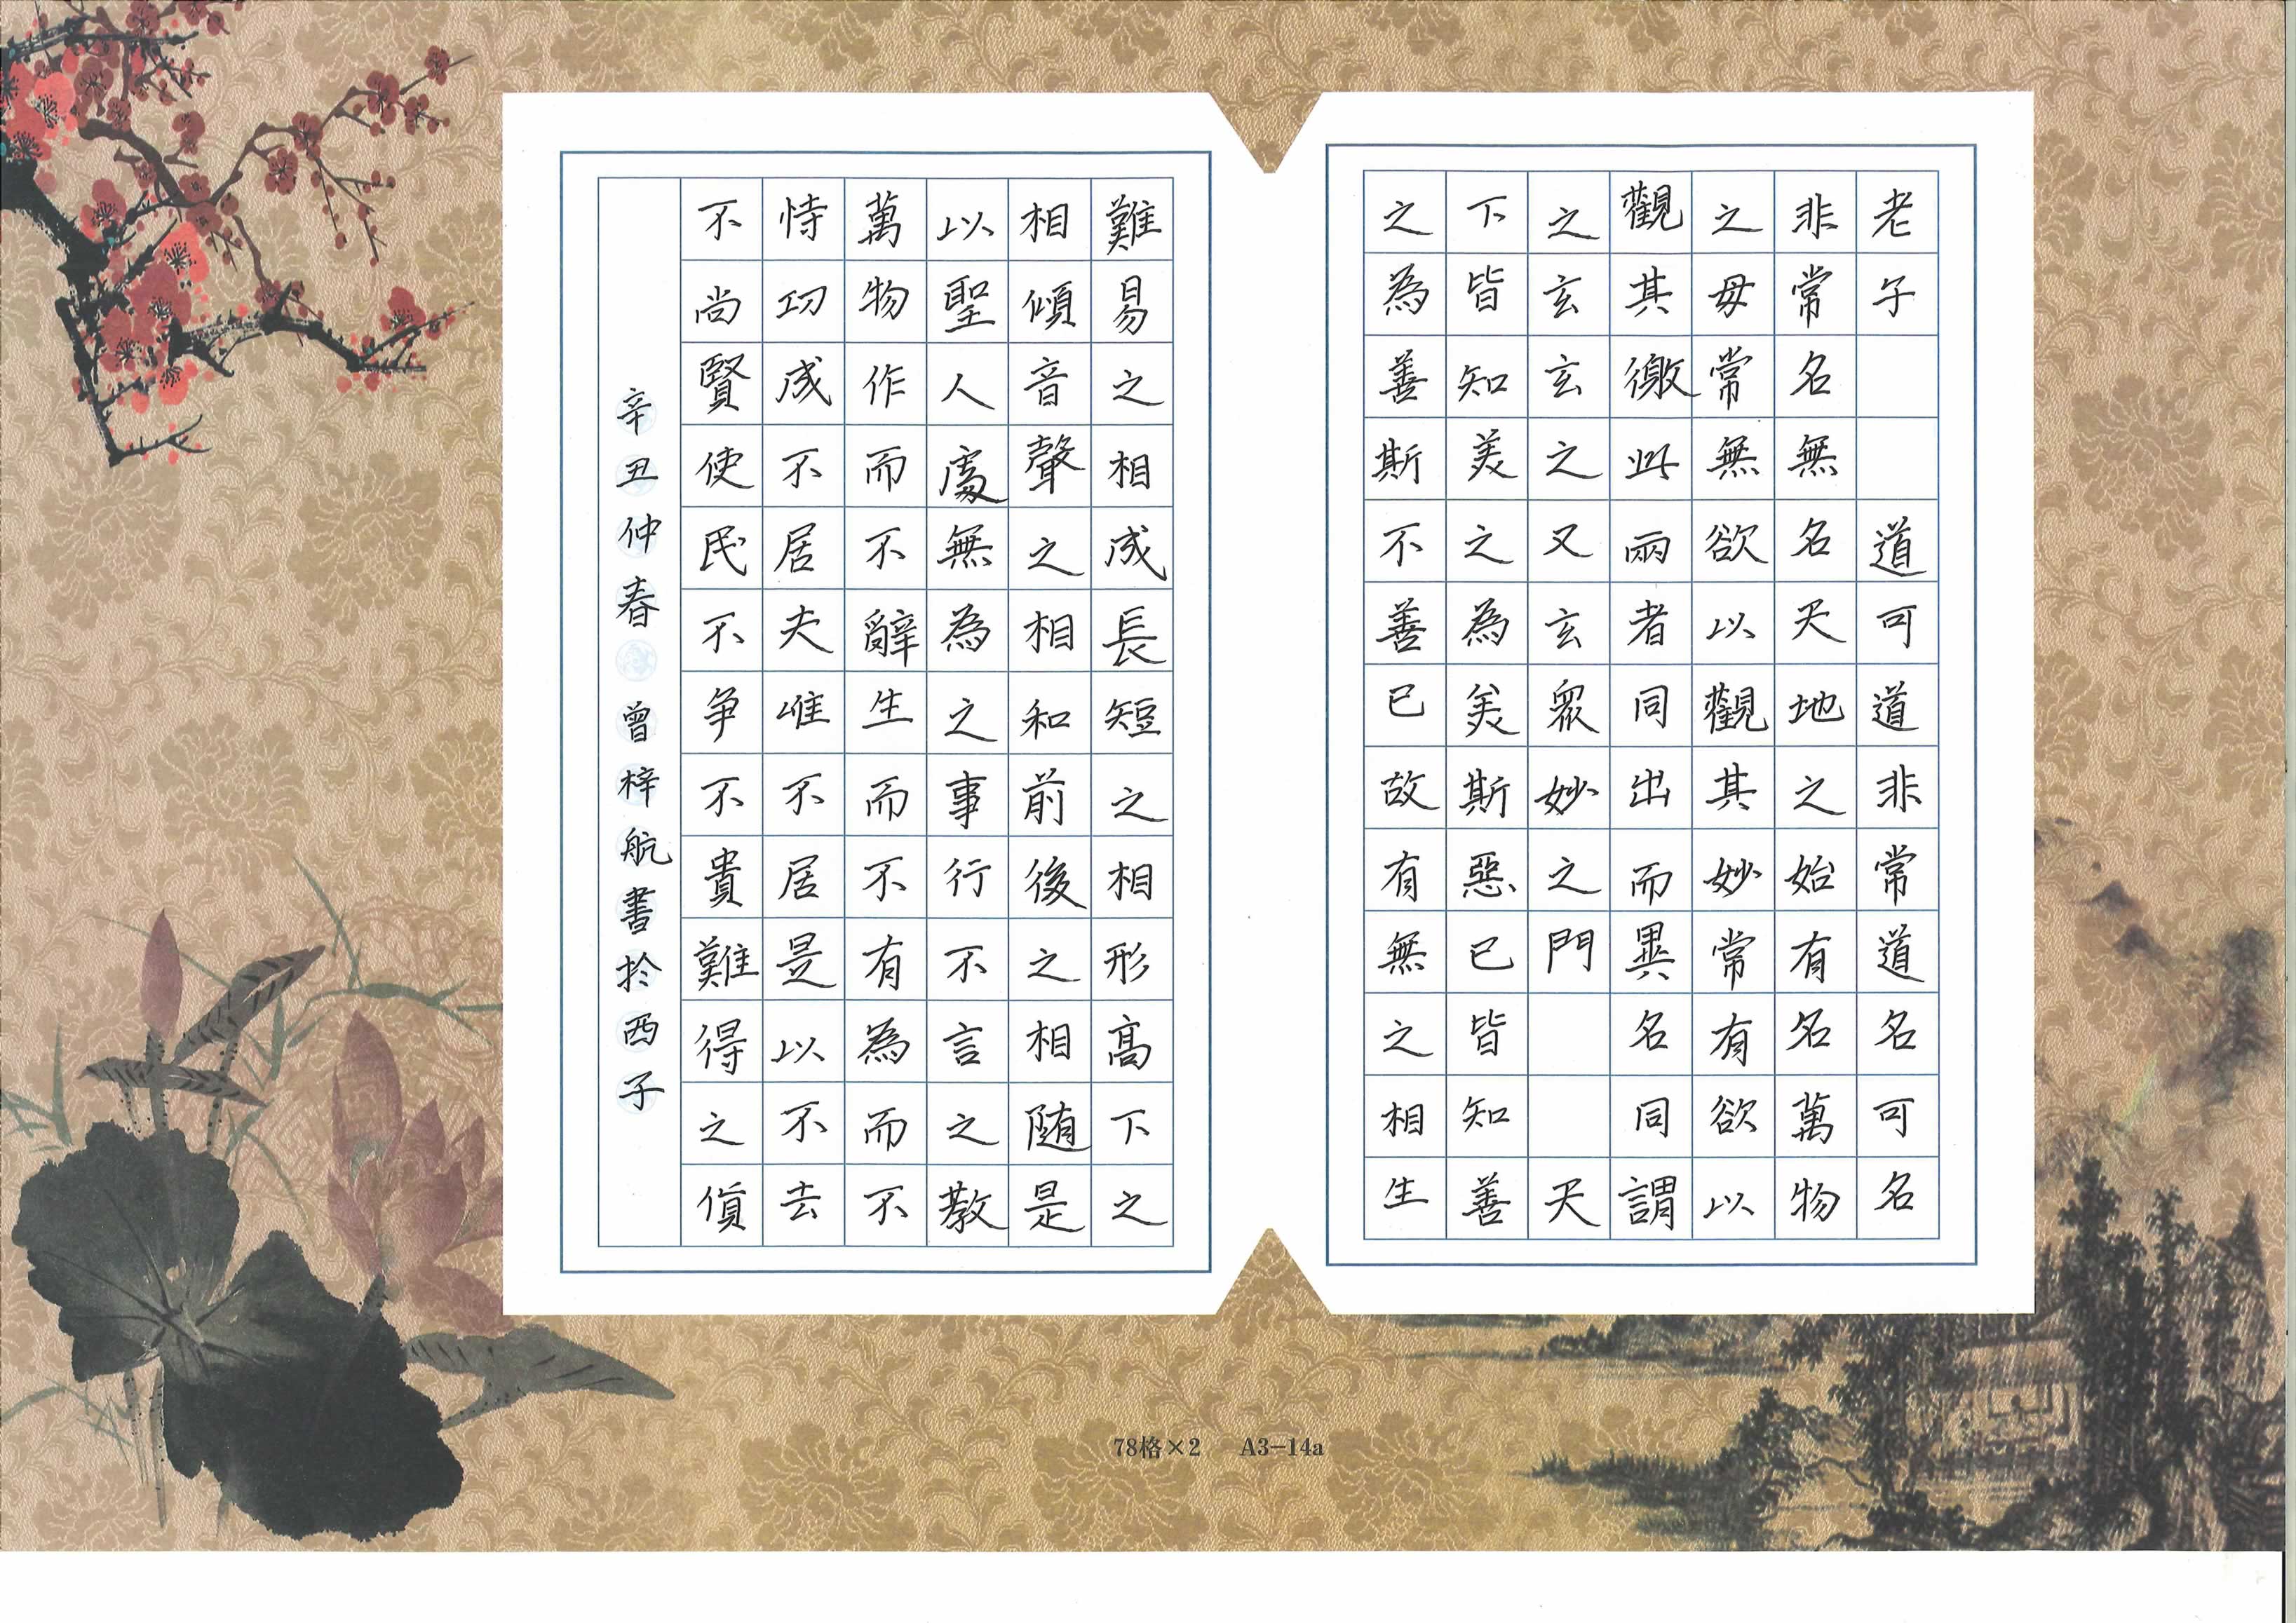 老子道可道非常道名可名
非常名無名天地之始有名萬物
之母常無欲以觀其妙常有欲以
觀其徼此兩者同出而異名同謂
之玄玄之又玄衆妙之門天
下皆知美之為美斯惡已皆知善
之為善斯不善已故有無之相生
難易之相成長短之相形高下之
相傾音聲之相和前後之相随是
以聖人處無為之事行不言之教
萬物作而不辭生而不有為而不
恃功成不居夫唯不居是以不去
不尚賢使民不争不貴難得之貨
辛丑仲春曾梓航書於西子
78格×2 A3-14a